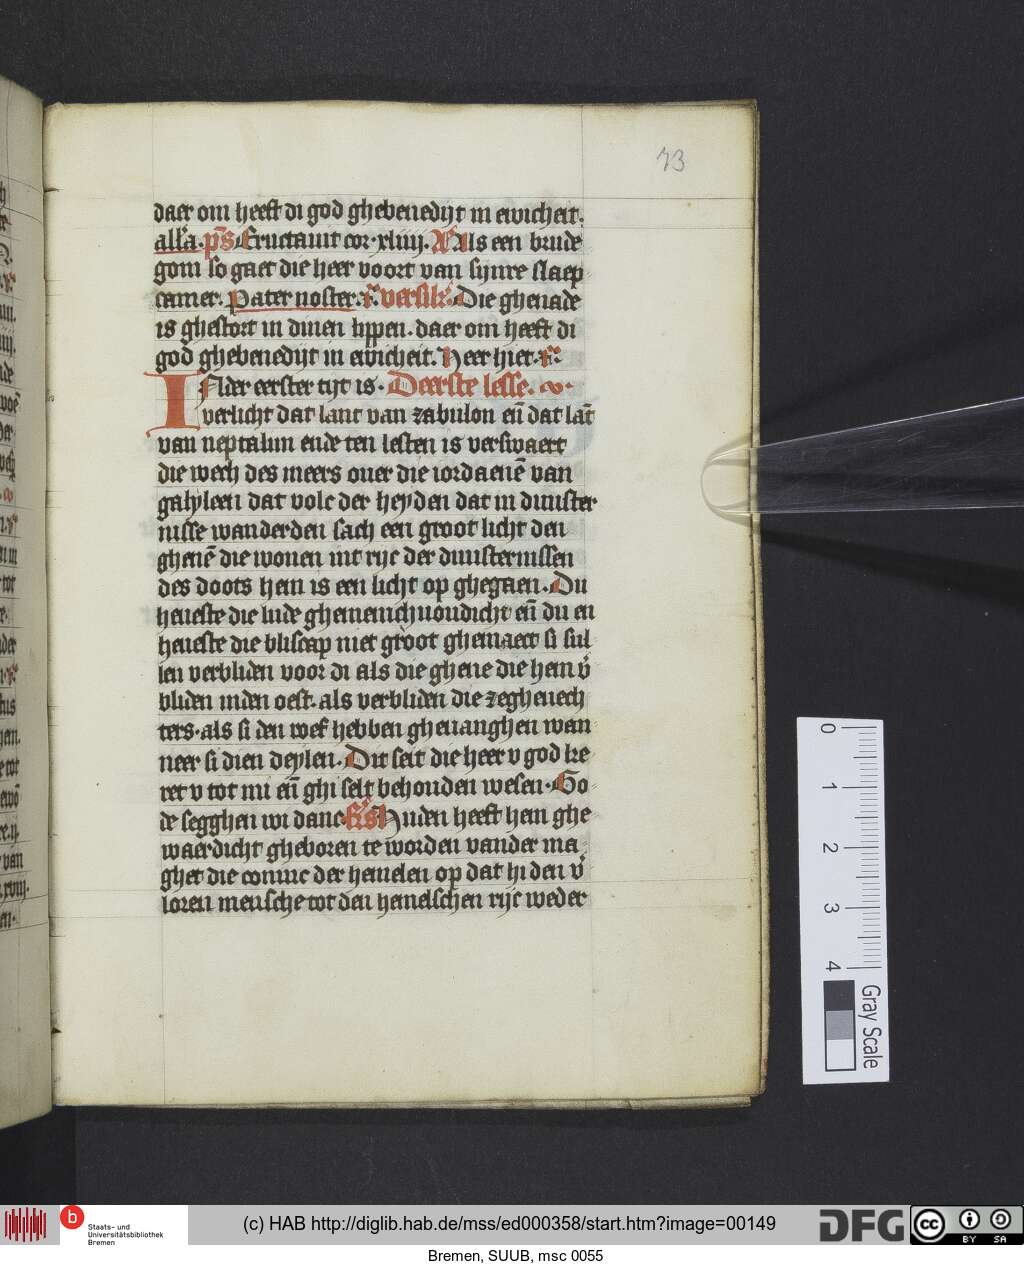 73
daer om heeft di god ghebenedijt in ewicheit.
all'a. ps̄ Eructauit cor. xliiij. Aͣ Als een brude
gom so gaet die heer voort van sijnre slaep
camer. Pater noster. r̄. versik'. Die ghenade
is ghestort in dinen lyppen. daer om heeft di
god ghebenedijt in ewicheit. Heer hier. r̄.
INder eerster tijt is. Deerste lesse.
verlicht dat lant van zabulon eñ dat lāt
van neptalim ende ten lesten is verswaert
die wech des meers ouer die iordaenē van
galyleen dat volc der heyden dat in duuster
nisse wanderden sach een groot licht den
ghenē die wonen int rijc der duusternissen
des doots hem is een licht op ghegaen. Du
heueste die lude ghemenichuoudicht eñ du en
heueste die bliscap niet groot ghemaect si sul
len verbliden voor di als die ghene die hem v̄
bliden inden oest. als verbliden die zeghenech
ters. als si den roef hebben gheuanghen wan
neer si dien deylen. Dit seit die heer v god ke
ret v tot mi eñ ghi selt behouden wesen. Go
de segghen wi danc. Huden heeft hem ghe
waerdicht gheboren te worden vander ma
ghet die coninc der hemelen op dat hi den v̄
loren mensche tot den hemelschen rijc weder
0 1 2 3 4
Gray Scale
b
Staats- und
Universitätsbibliothek
Bremen
(c) HAB http://diglib.hab.de/mss/ed000358/start.htm?image=00149
DFG
cc BY SA
Bremen, SUUB, msc 0055